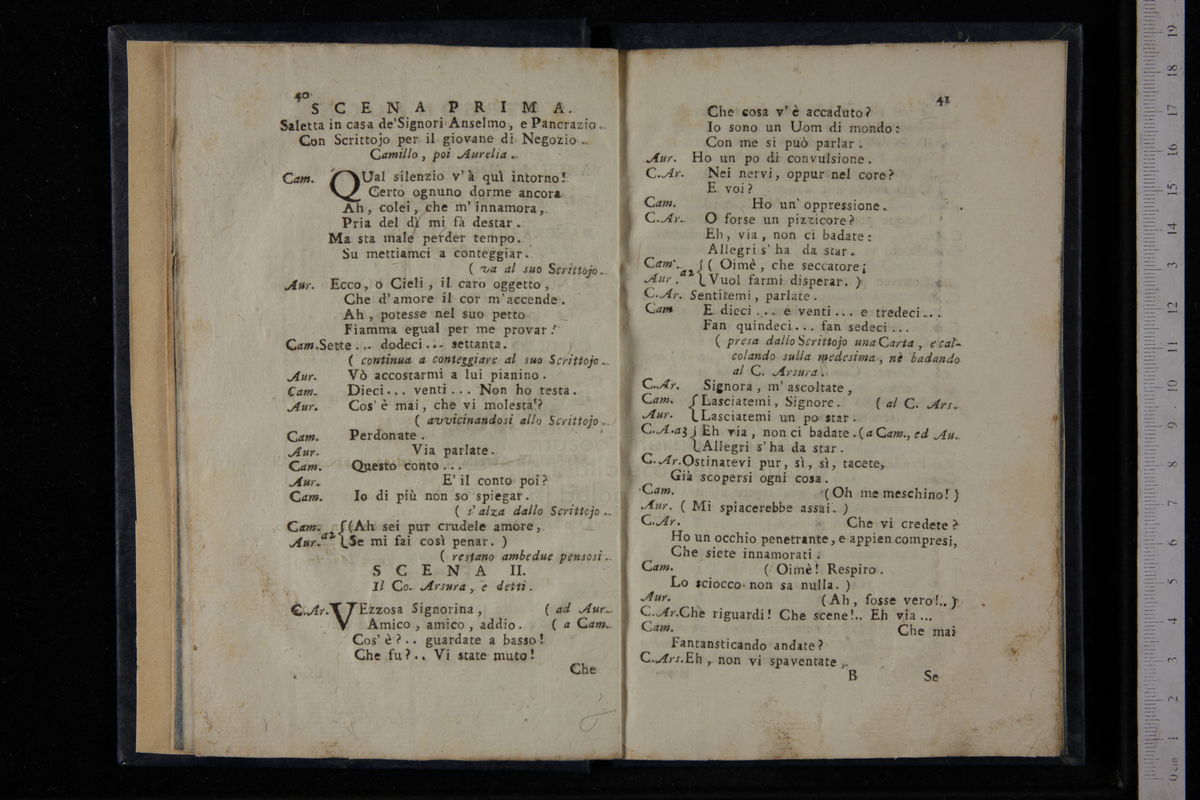 40
SCENA PRIMA.
Saletta in casa de'Signori Anselmo, e Pancrazio.
Con Scrittojo per il giovane di Negozio.
Camillo, poi Aurelia.
Cam. QUal silenzio v'à quì intorno!
Certo ognuno dorme ancora
Ah, colei, che m'innamora,
Pria del dì mi fà destar.
Ma sta male perder tempo.
Su mettiamci a conteggiar.
( va al suo Scrittojo.
Aur. Ecco, o Cieli, il caro oggetto,
Che d'amore il cor m'accende.
Ah, potesse nel suo petto
Fiamma egual per me provar!
Cam. Sette ... dodeci... settanta.
( continua a conteggiare al suo Scrittojo.
Aur. Vò accostarmi a lui pianino.
Cam. Dieci... venti... Non ho testa.
Aur. Cos' è mai, che vi molesta?
( avvicinandosi allo Scrittojo.
Cam. Perdonate.
Aur. Via parlate.
Cam. Questo conto...
Aur. E' il conto poi?
Cam. Io di più non so spiegar.
( s'alza dallo Scrittojo.
Cam. { (Ah sei pur crudele amore,
Aur. a2 { Se mi fai così penar. )
( restano ambedue pensosi.
SCENA II.
Il Co. Arsura, e detti.
C.Ar. VEzzosa Signorina, ( ad Aur.
Amico, amico, addio. ( a Cam.
Cos' è?.. guardate a basso!
Che fu?.. Vi state muto!
Che
41
Che cosa v'è accaduto?
Io sono un Uom di mondo:
Con me si può parlar.
Aur. Ho un po di convulsione.
C.Ar. Nei nervi, oppur nel core?
E voi?
Cam. Ho un' oppressione.
C.Ar. O forse un pizzicore?
Eh, via, non ci badate:
Allegri s'ha da star.
Cam. { ( Oimè, che seccatore;
Aur. a2 { Vuol farmi disperar. )
C.Ar. Sentitemi, parlate.
Cam E dieci... e venti... e tredeci...
Fan quindeci... fan sedeci...
( presa dallo Scrittojo una Carta, e cal-
colando sulla medesima, nè badando
al C. Arsura.
C.Ar. Signora, m' ascoltate,
Cam. { Lasciatemi, Signore. ( al C. Ars.
Aur. { Lasciatemi un po star.
C.A.a3 { Eh via, non ci badate. ( a Cam., ed Au.
{ Allegri s'ha da star.
C.Ar. Ostinatevi pur, sì, sì, tacete,
Già scopersi ogni cosa.
Cam. ( Oh me meschino! )
Aur. ( Mi spiacerebbe assai. )
C.Ar. Che vi credete?
Ho un occhio penetrante, e appien compresi,
Che siete innamorati.
Cam. ( Oimè! Respiro.
Lo sciocco non sa nulla. )
Aur. (Ah, fosse vero!.. )
C.Ar. Che riguardi! Che scene!.. Eh via...
Cam. Che mai
Fantansticando andate?
C.Ars. Eh, non vi spaventate,
B Se